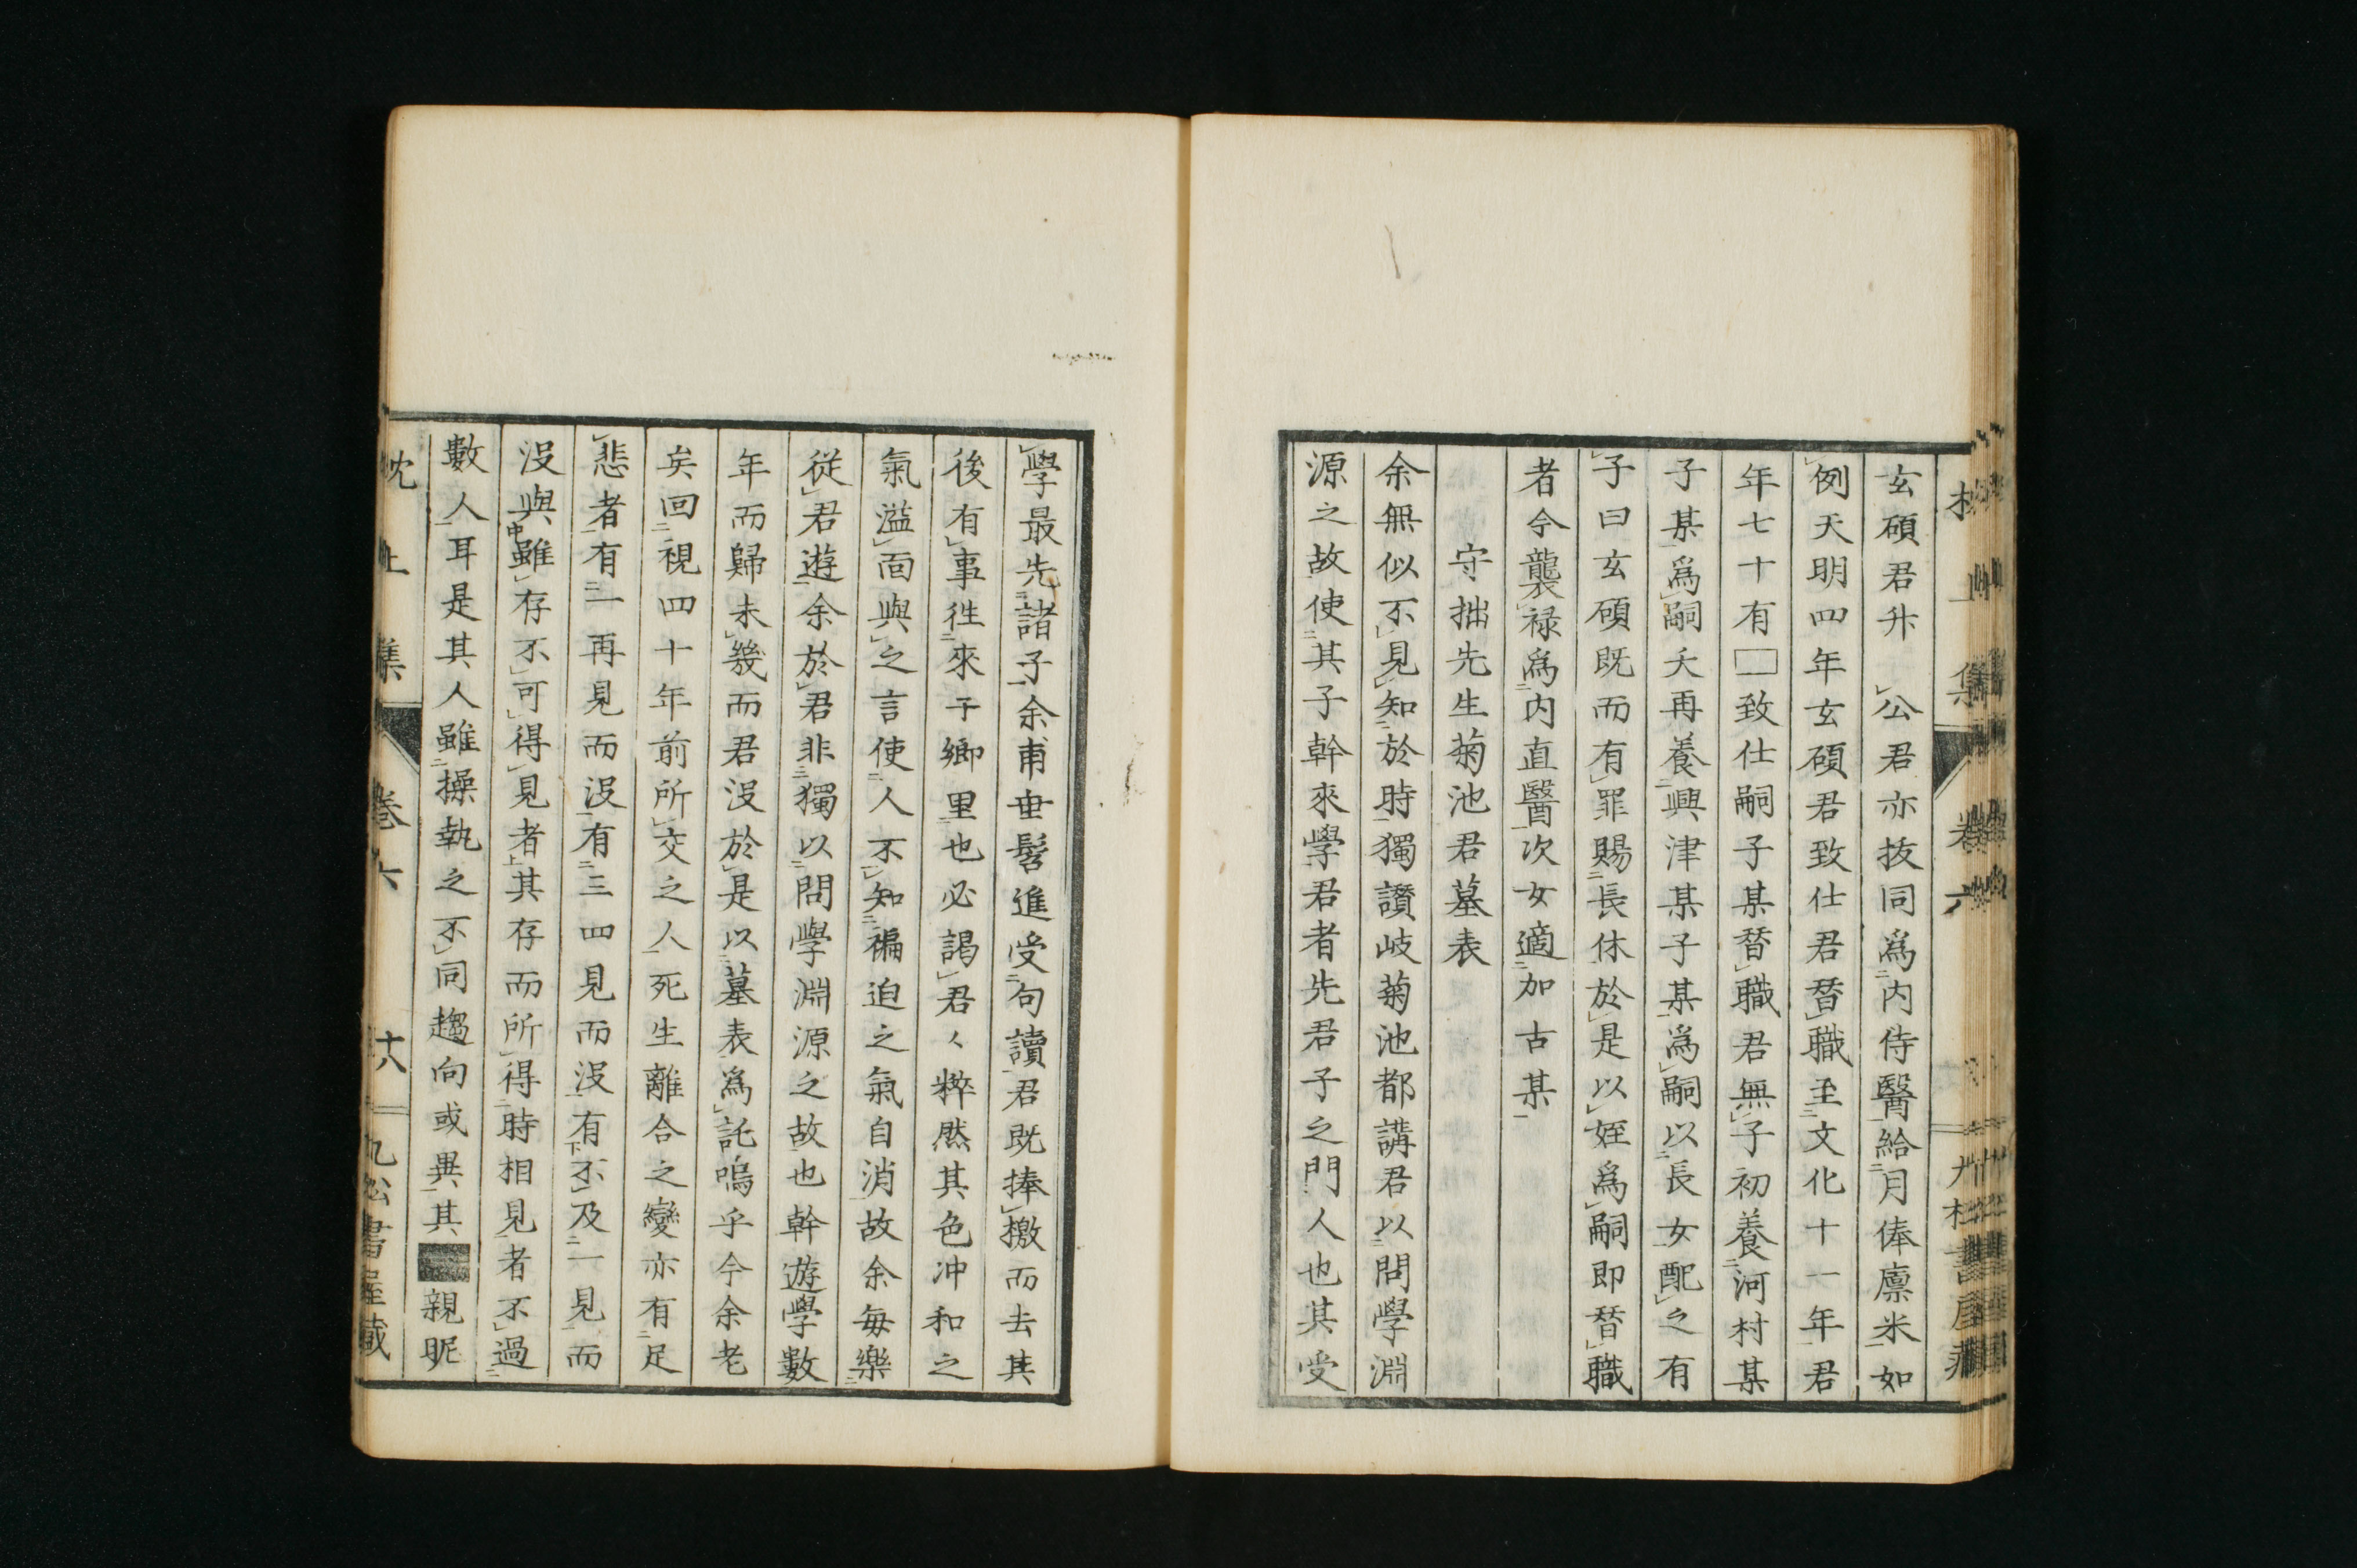 玄碩君升 公君亦抜同爲内侍醫給月俸廪米如
例天明四年玄碩君致仕君朁職至文化十一年君
年七十有□致仕嗣子某朁職君無子初養河村某
子某爲嗣夭再養興津某子某爲嗣以長女配之有
子曰玄碩既而有罪賜長休於是以姪爲嗣即朁職
者今襲禄爲内直醫次女適加古某
守拙先生菊池君墓表
余無似不見知於時獨讚岐菊池都講君以問學淵
源之故使其子幹來學君者先君子之門人也其受
學最先諸子余甫垂髫進受句讀君既捧檄而去其
後有事徃來于鄉里也必謁君〻粹然其色冲和之
氣溢面與之言使人不知褊迫之氣自消故余毎樂
從君遊余於君非獨以問學淵源之故也幹遊學數
年而歸未幾而君没於是以墓表爲託嗚乎今余老
矣回視四十年前所交之人死生離合之變亦有足
悲者有一再見而没有三四見而没有不及一見而
没與雖存不可得見者其存而所得時相見者不過
數人耳是其人雖操執之不同趨向或異其親昵
卷六
十六
九松書屋藏